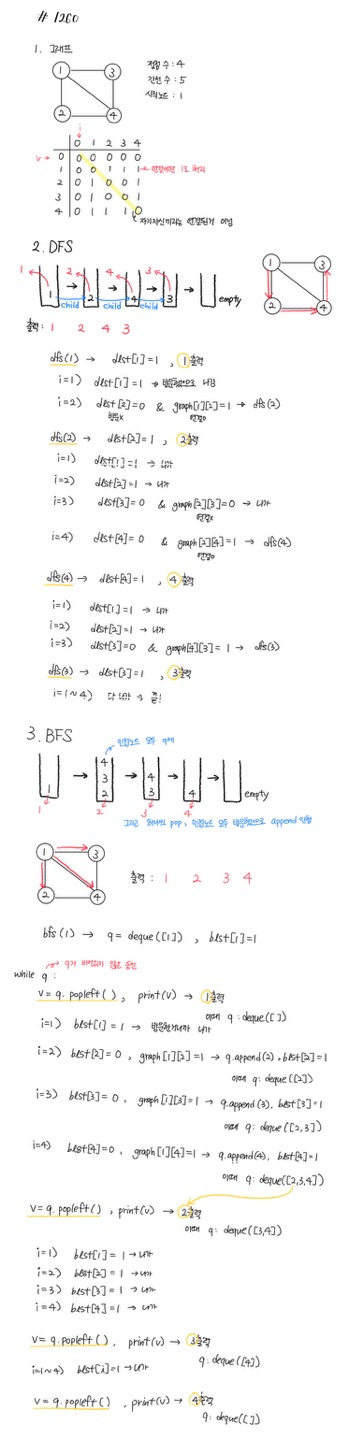 # 1260
1. 그래프
1 3
2 4
정점 수 : 4
간선 수 : 5
시작노드 : 1
i
0 1 2 3 4
v → 0 0 0 0 0 0
1 0 0 1 1 1 → 연결에만 1로 처리
2 0 1 0 0 1
3 0 1 0 0 1
4 0 1 1 1 0
자기자신끼리는 연결된거 아님
2. DFS
1 2 4 3
1 2 4 3 empty
child child child
출력 : 1 2 4 3
1 3
2 4
dfs(1) → dlst[1]=1 , 1출력
i=1) dlst[1]=1 → 방문했으므로 나감
i=2) dlst[2]=0 & graph[1][2]=1 → dfs(2)
방문X 연결O
dfs(2) → dlst[2]=1 , 2출력
i=1) dlst[1]=1 → 나가
i=2) dlst[2]=1 → 나가
i=3) dlst[3]=0 & graph[2][3]=0 → 나가
연결X
i=4) dlst[4]=0 & graph[2][4]=1 → dfs(4)
연결O
dfs(4) → dlst[4]=1 , 4출력
i=1) dlst[1]=1 → 나가
i=2) dlst[2]=1 → 나가
i=3) dlst[3]=0 & graph[4][3]=1 → dfs(3)
dfs(3) → dlst[3]=1 , 3출력
i=1~4) 다 나가 → 끝!
3. BFS
인접노드 모두 q에
1
4
3
2
4
3
4
empty
1 2 3 4
그다음 하나씩 pop, 인접노드 모두 방문했으므로 append 안함
1 3
2 4
출력 : 1 2 3 4
bfs(1) → q = deque([1]) , blst[1]=1
q가 비어있지 않은 동안
while q :
v = q.popleft() , print(v) → 1출력
이때 q : deque([])
i=1) blst[1]=1 → 방문한거니까 나가
i=2) blst[2]=0 , graph[1][2]=1 → q.append(2), blst[2]=1
이때 q : deque([2])
i=3) blst[3]=0 , graph[1][3]=1 → q.append(3), blst[3]=1
이때 q : deque([2,3])
i=4) blst[4]=0 , graph[1][4]=1 → q.append(4), blst[4]=1
이때 q : deque([2,3,4])
v = q.popleft() , print(v) → 2출력
이때 q : deque([3,4])
i=1) blst[1]=1 → 나가
i=2) blst[2]=1 → 나가
i=3) blst[3]=1 → 나가
i=4) blst[4]=1 → 나가
v = q.popleft() , print(v) → 3출력
q : deque([4])
i=1~4) blst[i]=1 → 나가
v = q.popleft() , print(v) → 4출력
q : deque([])